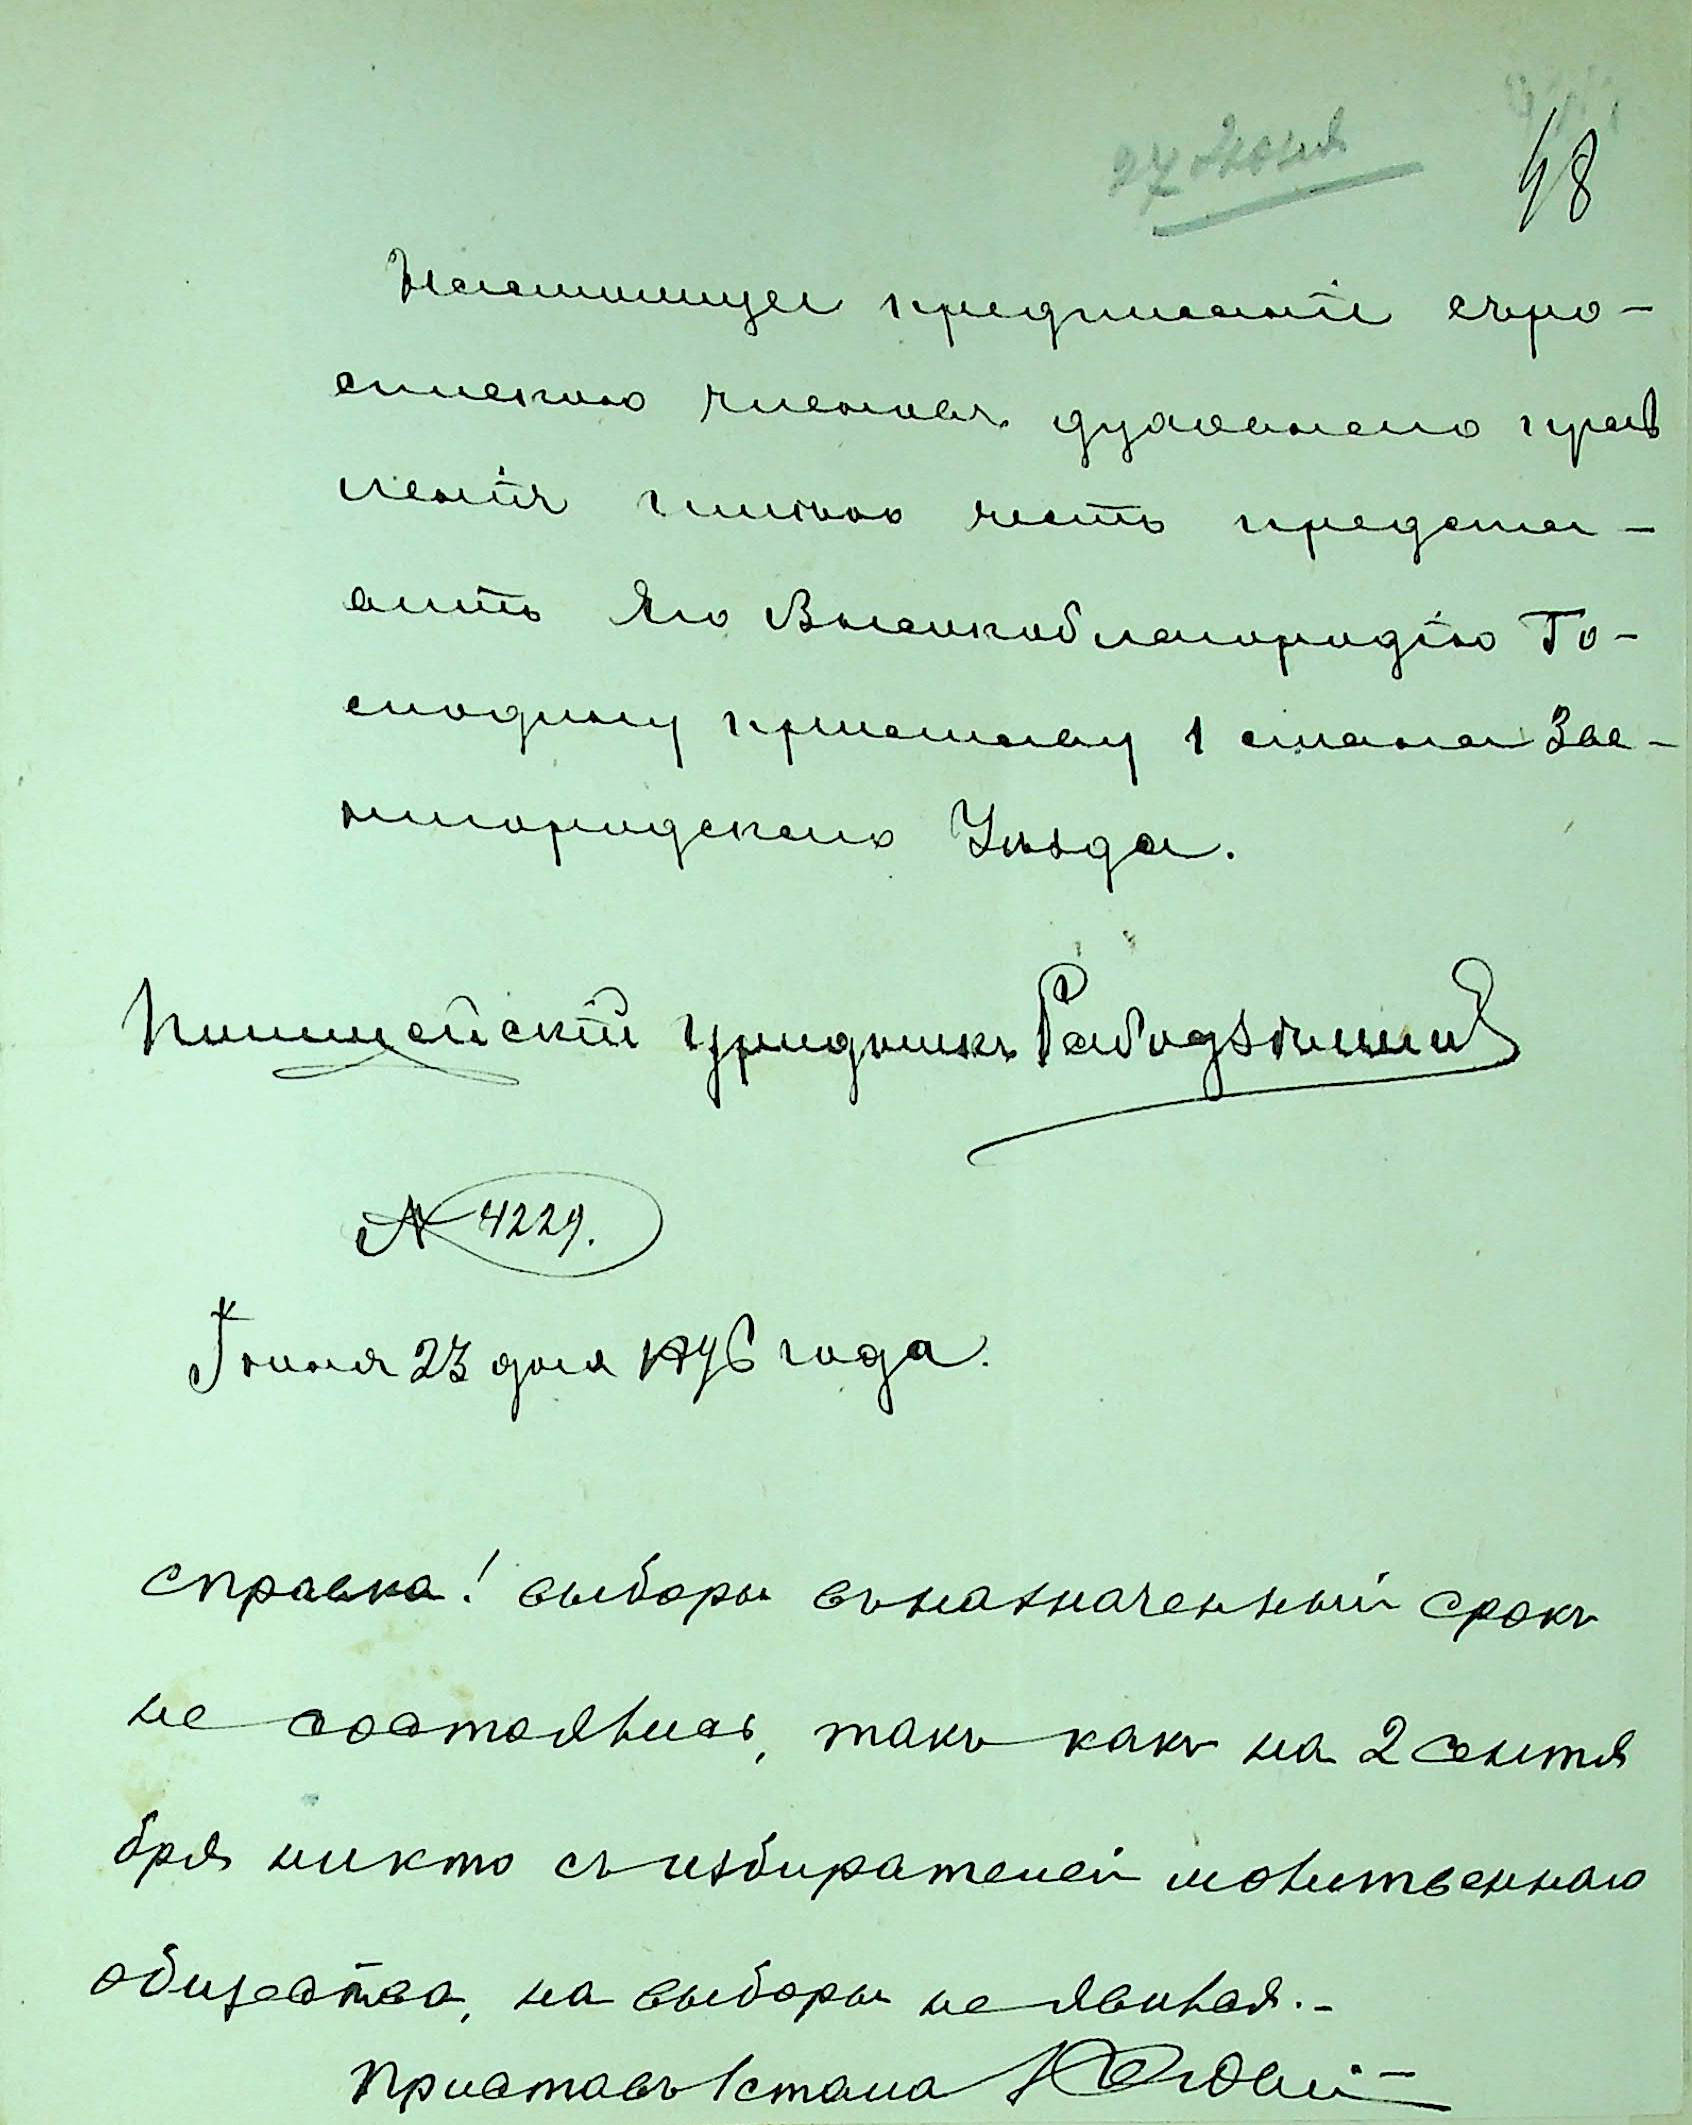 27 Июня
48
Настоящее предписаніе съ ро-
спискою членовъ духовнаго прав
ленія имѣю честь предста-
вить Его Высокоблагородію Го-
сподину приставу 1 стана Зве-
нигородскаго Уѣзда.
Полицейскій урядникъ
№ 4229.
Іюня 23 дня 1896 года.
справка! выборы въ назначенный срокъ
не состоялись, такъ какъ на 2 сентя
бря никто съ избирателей молитвеннаго
общества, на выборы не явился.-
Приставъ 1 стана